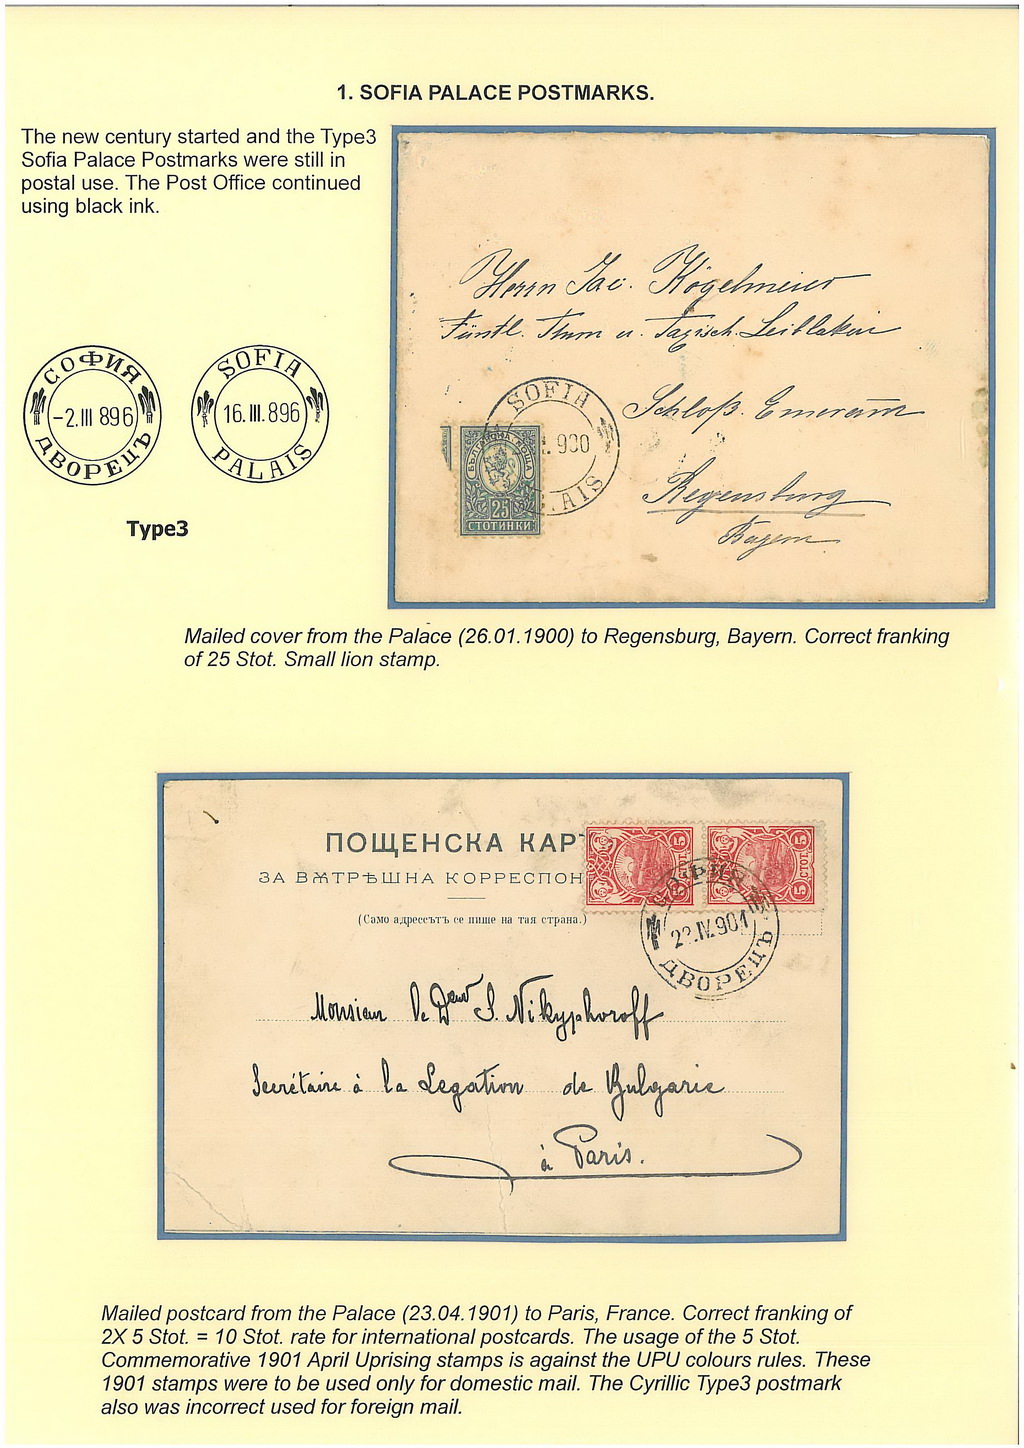 1. SOFIA PALACE POSTMARKS.
The new century started and the Type3
Sofia Palace Postmarks were still in
postal use. The Post Office continued
using black ink.
СОФИЯ
-2.III 896
ДВОРЕЦЪ
SOFIA
16.III.896
PALAIS
Type3
Herrn Jac. Kögelmeier
Fürstl. Thurn u. Taxisch. Leiblakai
Schloß Emeram
Regensburg
Bayern
SOFIA
900
AIS
БЪЛГАРСКА ПОЩА
25
СТОТИНКИ
Mailed cover from the Palace (26.01.1900) to Regensburg, Bayern. Correct franking
of 25 Stot. Small lion stamp.
ПОЩЕНСКА КАР
ЗА ВѪТРѢШНА КОРРЕСПОН
(Само адрессътъ се пише на тая страна.)
5 СТОТ. 5
5 СТОТ. 5
IV.901
ДВОРЕЦЪ
Monsieur le Dr S. Nikyphoroff
Secrétaire à la Legation de Bulgarie
à Paris.
Mailed postcard from the Palace (23.04.1901) to Paris, France. Correct franking of
2X 5 Stot. = 10 Stot. rate for international postcards. The usage of the 5 Stot.
Commemorative 1901 April Uprising stamps is against the UPU colours rules. These
1901 stamps were to be used only for domestic mail. The Cyrillic Type3 postmark
also was incorrect used for foreign mail.